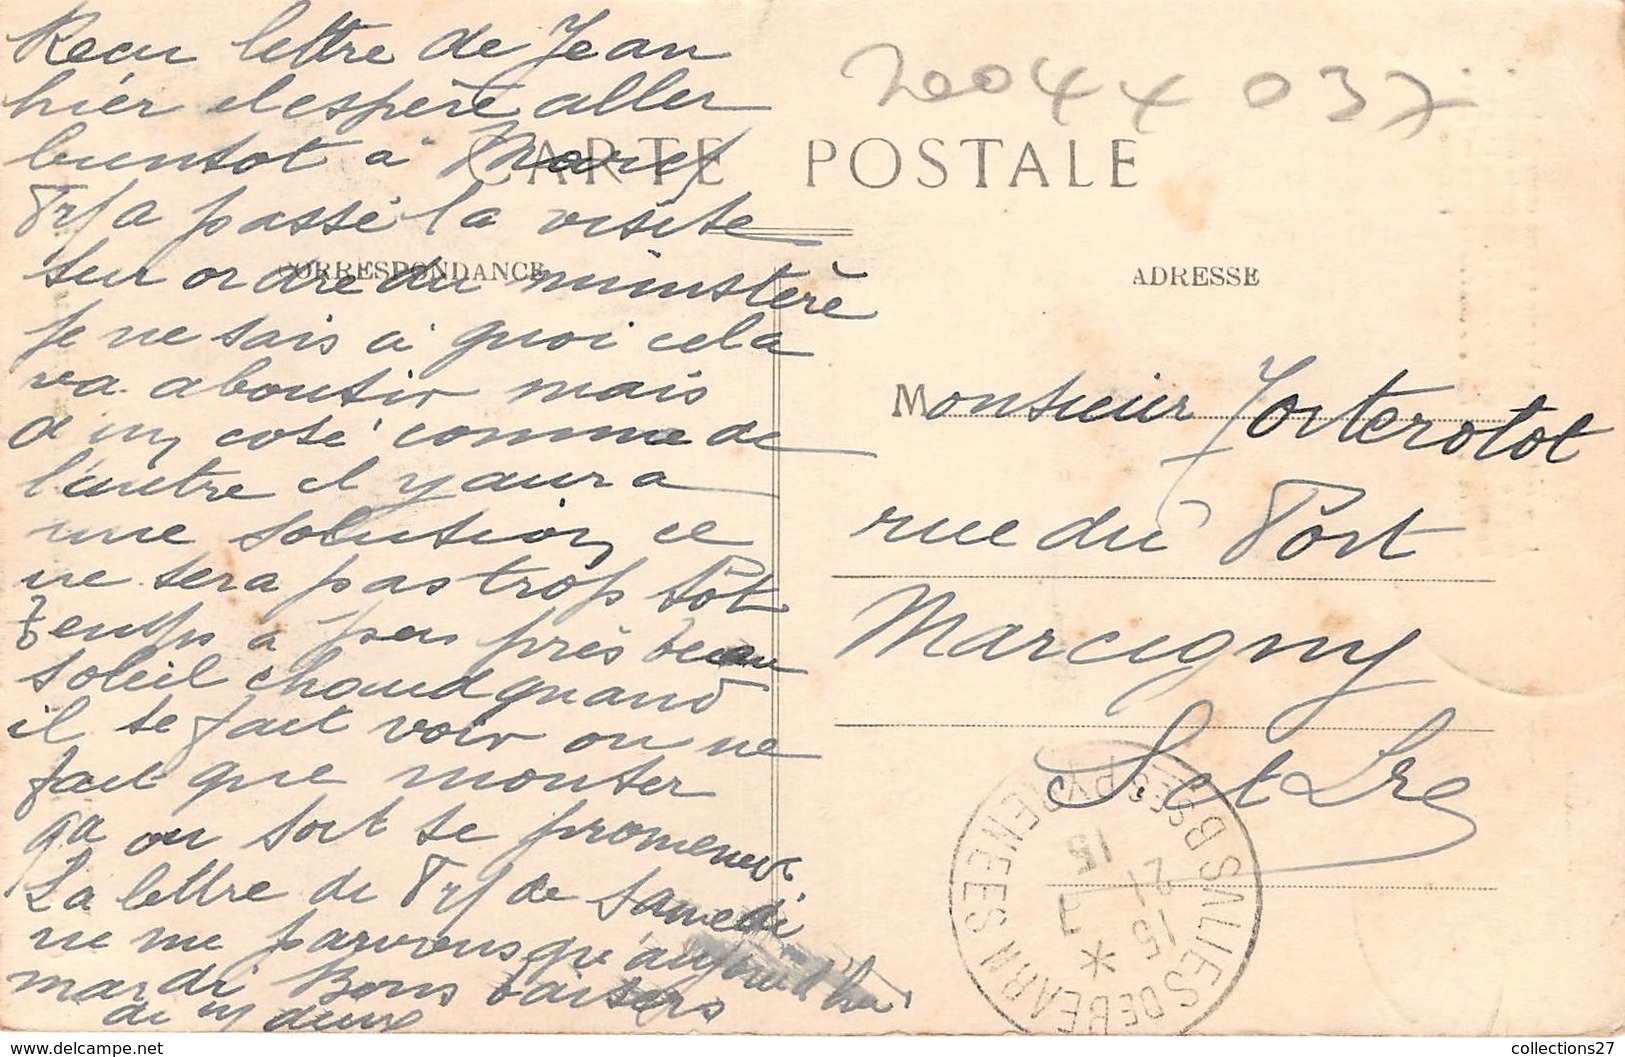 Recu lettre de Jean
hier il espère aller
bientot à Marcy
Trf a passé la visite
sur ordre du ministère
je ne sais à quoi cela
va aboutir mais
d'un coté comme de
l'autre il y aura
une solution ce
ne sera pas trop tôt
Temps à peu près beau
soleil chaud quand
il se fait voir on ne
fait que monter
ça on sort se promener
La lettre de Trf de Samedi
ne me parviens qu'aujourd'hui
mardi Bons baisers
2004 x 037
CARTE POSTALE
CORRESPONDANCE
ADRESSE
Monsieur Forterotot
rue du Port
Marcigny
S et Lre
SALIES DE BEARN
BSES PYRENEES
15
21
15
collections27